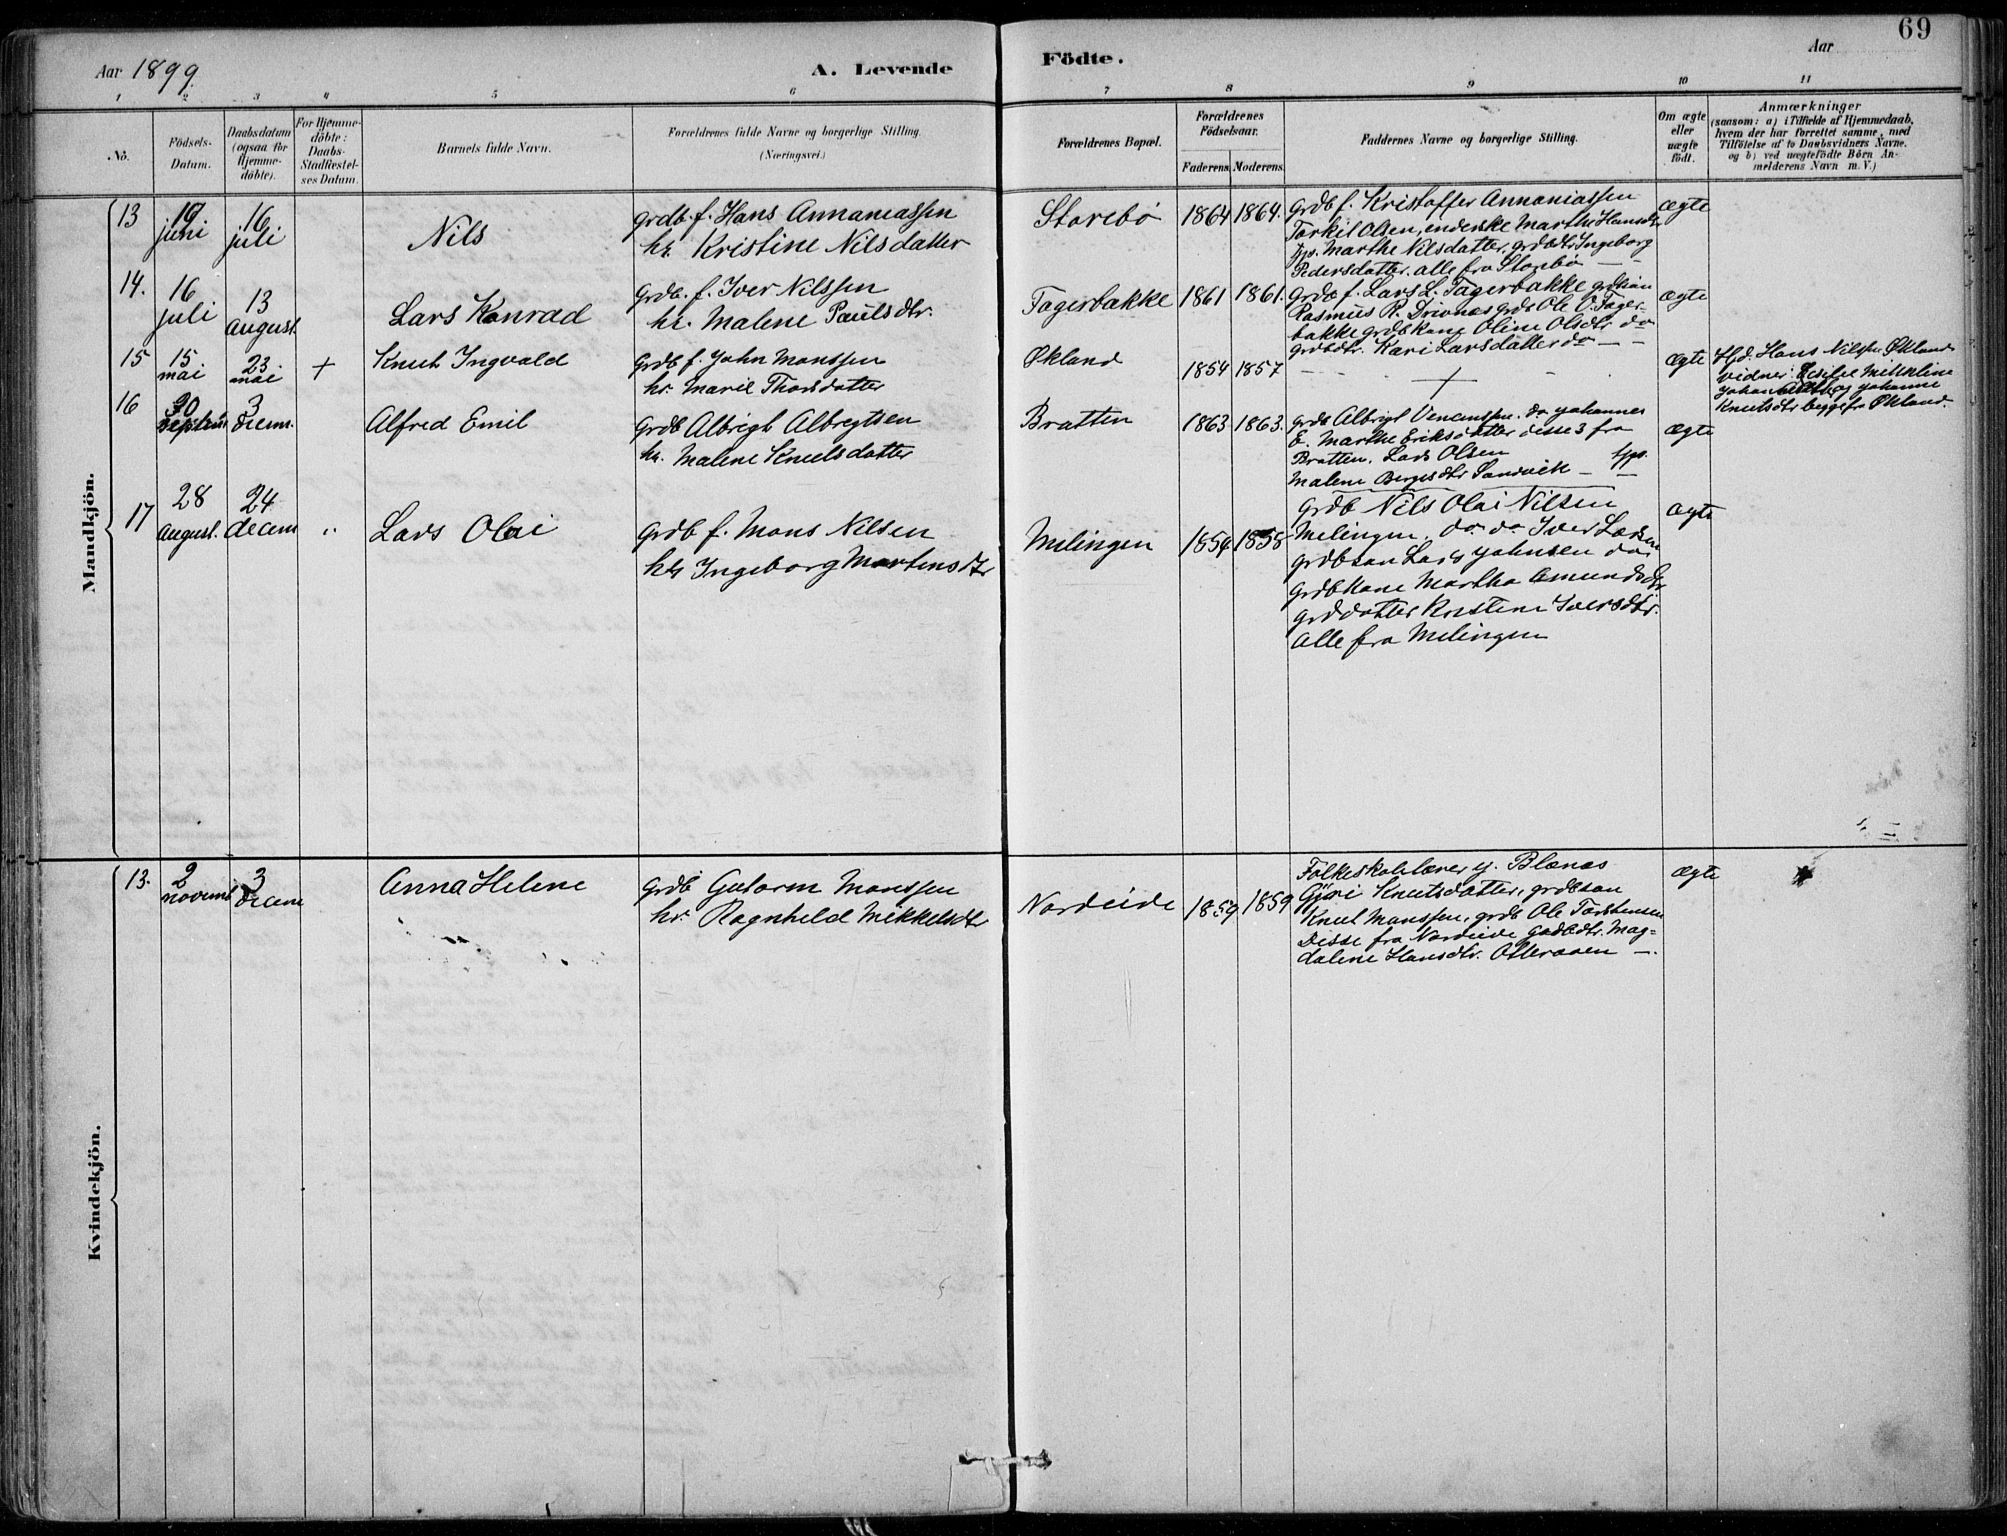 69
Aar 1899.
A. Levende
Födte.
Aar
1 2 3 4 5 6 7 8 9 10 11
No.
Födsels-
Datum.
Daabsdatum
(ogsaa for
Hjemme-
döbte).
For Hjemme-
döbte:
Daabs-
Stadfæstel-
ses Datum.
Barnets fulde Navn.
Forældrenes fulde Navne og borgerlige Stilling.
(Næringsvei.)
Forældrenes Bopæl.
Forældrenes
Födselsaar.
Faderens. Moderens.
Faddernes Navne og borgerlige Stilling.
Om ægte
eller
uægte
født.
Anmærkninger
(saasom: a) i Tilfælde af Hjemmedaab,
hvem der har forrettet samme, med
Tilföielse af to Daabsvidners Navne.
og b) ved uægtefödte Börn An-
melderens Navn m. V.)
Mandkjön.
13
juni
16
juli
Nils
grdb. f. Hans Annaniassen
hr. Kristine Nilsdatter
Storebø
1864 1864.
grdb f. Kristoffer Annaniassen
Torkil Olsen, enderske Marthe Hansdtr
Marthe Nilsdatter, grdbdtr Ingeborg
Pedersdatter. alle fra Storebø
ægte
14.
16
juli
13
august.
Lars Konrad
grdb. f. Iver Nilssen
hr. Malene Paulsdtr.
Tagerbakke
1861 1861.
grdb f. Lars L. Tagerbakke grdbsøn
Rasmus R. Drivnes grdb Ole O. Tager-
bakke grdbkone Oline Olsdtr do
grdbdtr. Kari Larsdatter do
ægte
15
15
mai
23
mai
+
Knut Ingvald
grdb f. John Monssen
hr. Marie Thorsdatter
Økland
1854 1857
+
ægte
Hjd. Hans Nilssen Økland
vidner:
Johan og Johanne
Knutsdtr begge fra Økland.
16
30
septem
3
decem.
Alfred Emil
grdb Albrigt Albregtsen
hr. Malene Knutsdatter
Bratten
1863 1863.
grdb Albrigt do Johannes
E. Marthe Eriksdatter disse 3 fra
Bratten. Lars Olsen
Malene Bergesdtr Sandvik
ægte
17
28
August.
24
decem
"
Lars Olai
grdb f. Mons Nilsen
hr Ingeborg Martensdtr
Melingen
1854 1858
grdb Nils Olai Nilsen
Melingen. do do Iver Larsen
grdbsøn Lars Johnsen do
grdbkone Martha Amundsdtr.
grddatter Kristine Iversdtr.
Alle fra Melingen
ægte
Kvindekjön.
13.
2
novemb
3
decem
Anna Helene
grdb Gutorm Monssen
hr. Ragnhild Mikkelsdtr
Nordeide
1859 1859
Folkeskolelærer J. Blænes
Guri Knutsdatter, grdbsøn
Knut Monssen, grdb Ole Torstensen
Disse fra Nordeide Gadbdtr. Mag-
dalene Hansdtr. Otteraaen
ægte